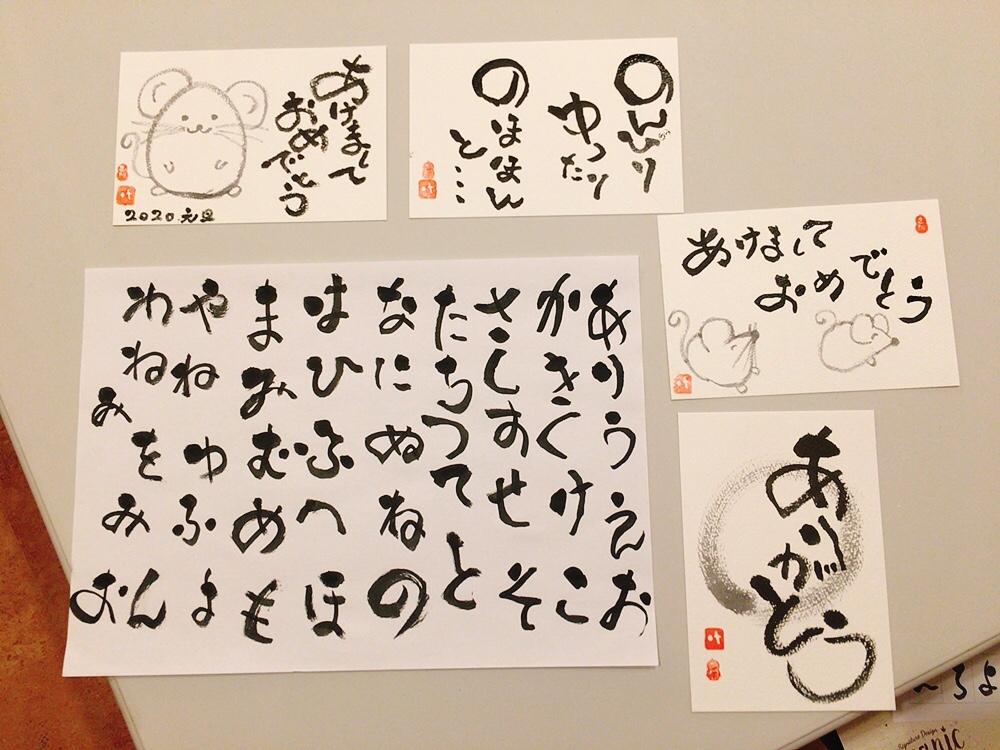 あけまして
おめでとう
2020.元旦
のんびり
ゆったり
のほほん
と…
あけまして
おめでとう
あいうえお
かきくけこ
さしすせそ
たちつてと
なにぬねの
はひふへほ
まみむめも
やねゆふよ
わねをみん
みお
ありがとう
叶
Signature Design